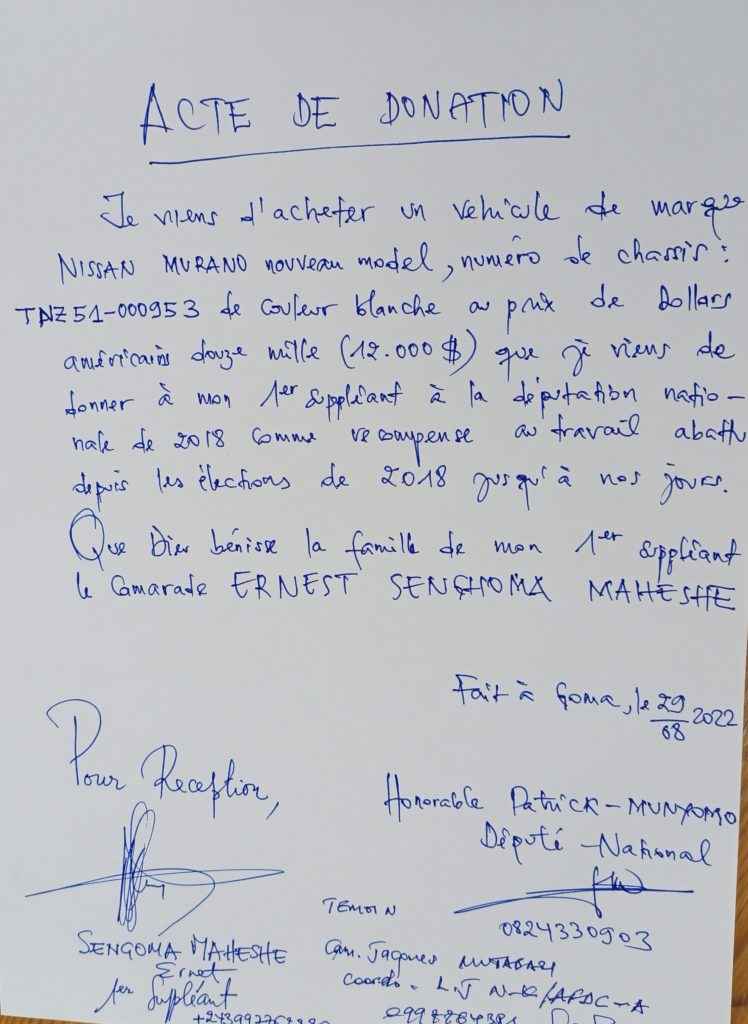 ACTE DE DONATION
Je viens d'acheter un vehicule de marque
NISSAN MURANO nouveau model, numéro de chassis :
TNZ51-000953 de couleur blanche au prix de Dollars
américains douze mille (12.000 $) que je viens de
donner à mon 1er suppléant à la députation natio-
nale de 2018 comme recompense au travail abattu
depuis les élections de 2018 jusqu'à nos jours.
Que Dieu bénisse la famille de mon 1er suppléant
le Camarade ERNEST SENGHOMA MAHESHE
Fait à Goma, le 29/08 2022
Pour Reception,
Honorable PATRICK-MUNYOMO
Député-National
0824330903
TEMOIN
SENGOMA MAHESHE
Ernet
1er Supléant
Cam. Jaques MUTABAZI
Coordo. L.J N-K/AFDC-A